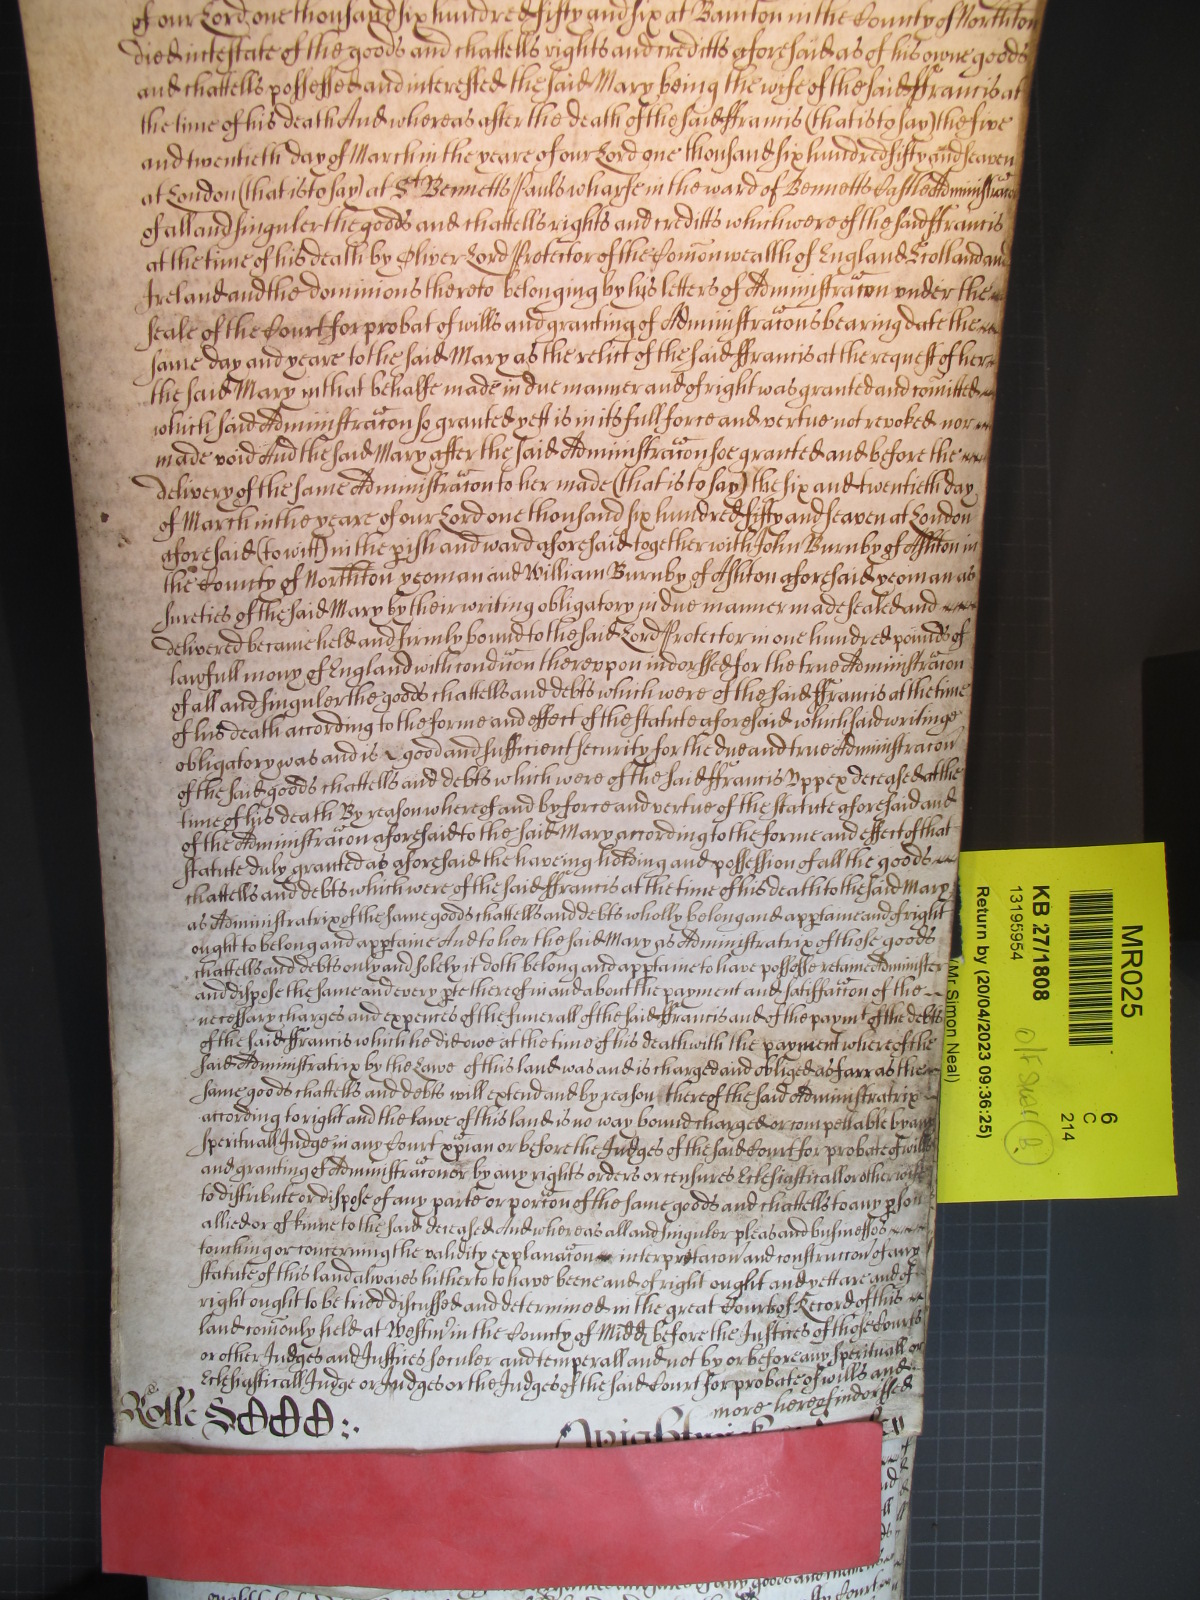 of our Lord one thousand six hundred fifty and six at Bainton in the County of Northton
died intestate of the goods and chattells rights and creditts aforesaid as of his owne goods
and chattells possessed and interessed the said Mary being the wife of the said ffrancis at
the time of his death And whereas after the death of the said ffrancis (that is to say) the five
and twentieth day of March in the yeare of our Lord one thousand six hundred fifty and seaven
at London (that is to say) at St Bennetts Pauls wharfe in the ward of Bennetts Castle Administracon
of all and singuler the goods and chattells rights and creditts which were of the said ffrancis
at the time of his death by Oliver Lord Protector of the Comonwealth of England Scotland and
Ireland and the dominions thereto belonging by his letters of Administracon under the
seale of the Court for probat of wills and granting of Administracons bearing date the
same day and yeare to the said Mary as the relict of the said ffrancis at the request of her
the said Mary in that behalfe made in due manner and of right was granted and comitted
which said Administracon so granted yett is in its full force and vertue not revoked nor
made void And the said Mary after the said Administracon soe granted and before the
delivery of the same Administracon to her made (that is to say) the six and twentieth day
of March in the yeare of our Lord one thousand six hundred fifty and seaven at London
aforesaid (to witt) in the pish and ward aforesaid together with John Burnby of Ashton in
the County of Northton yeoman and William Burnby of Ashton aforesaid yeoman as
sureties of the said Mary by their writing obligatory in due manner made sealed and
delivered became held and firmly bound to the said Lord Protector in one hundred pounds of
lawfull mony of England with condicon thereupon indorsed for the true Administracon
of all and singuler the goods chattells and debts which were of the said ffrancis at the time
of his death according to the forme and effect of the statute aforesaid which said writinge
obligatory was and is good and sufficient security for the due and true Administracon
of the said goods chattells and debts which were of the said ffrancis Uppex deceased at the
time of his death By reason whereof and by force and vertue of the statute aforesaid and
of the Administracon aforesaid to the said Mary according to the forme and effect of that
statute duly granted as aforesaid the haveing holding and possession of all the goods
chattells and debts which were of the said ffrancis at the time of his death to the said Mary
as Administratrix of the same goods chattells and debts wholly belong and apptaine and of right
ought to belong and apptaine And to her the said Mary as Administratrix of those goods
chattells and debts only and solely it doth belong and apptaine to have possesse retaine Administer
and dispose the same and every pte thereof in and about the payment and satisfaccon of the
necessary charges and expences of the funerall of the said ffrancis and of the paymt of the debts
of the said ffrancis which he did owe at the time of his death with the payment whereof the
said Administratrix by the Lawe of this land was and is charged and obliged as farr as the
same goods chattells and debts will extend and by reason thereof the said Administratrix
according to right and the lawe of this land is no way bound charged or compellable by any
sperituall Judge in any Court xpian or before the Judges of the said Court for probate of wills
and granting of Administracons or by any rights orders or censures Eclesiasticall or otherwise
to distribute or dispose of any parte or porcon of the same goods and chattells to any pson
allied or of kinne to the said deceased And whereas all and singuler pleas and businesses
touching or concerning the validity explanacon interpretacon and construccon of any
statute of this land alwaies hitherto to have beene and of right ought and yett are and of
right ought to be tried discussed and determined in the great Courts of Record of this
land comonly held at Westmr in the County of Midd before the Justices of those Courts
or other Judges and Justices seculer and temperall and not by or before any sperituall or
Eclesiasticall Judge or Judges or the Judges of the said Court for probate of wills and
more hereof indorssed
Rolle
MR025
6
C
214
KB 27/1808
13195954
Return by (20/04/2023 09:36:25)
(Mr Simon Neal)